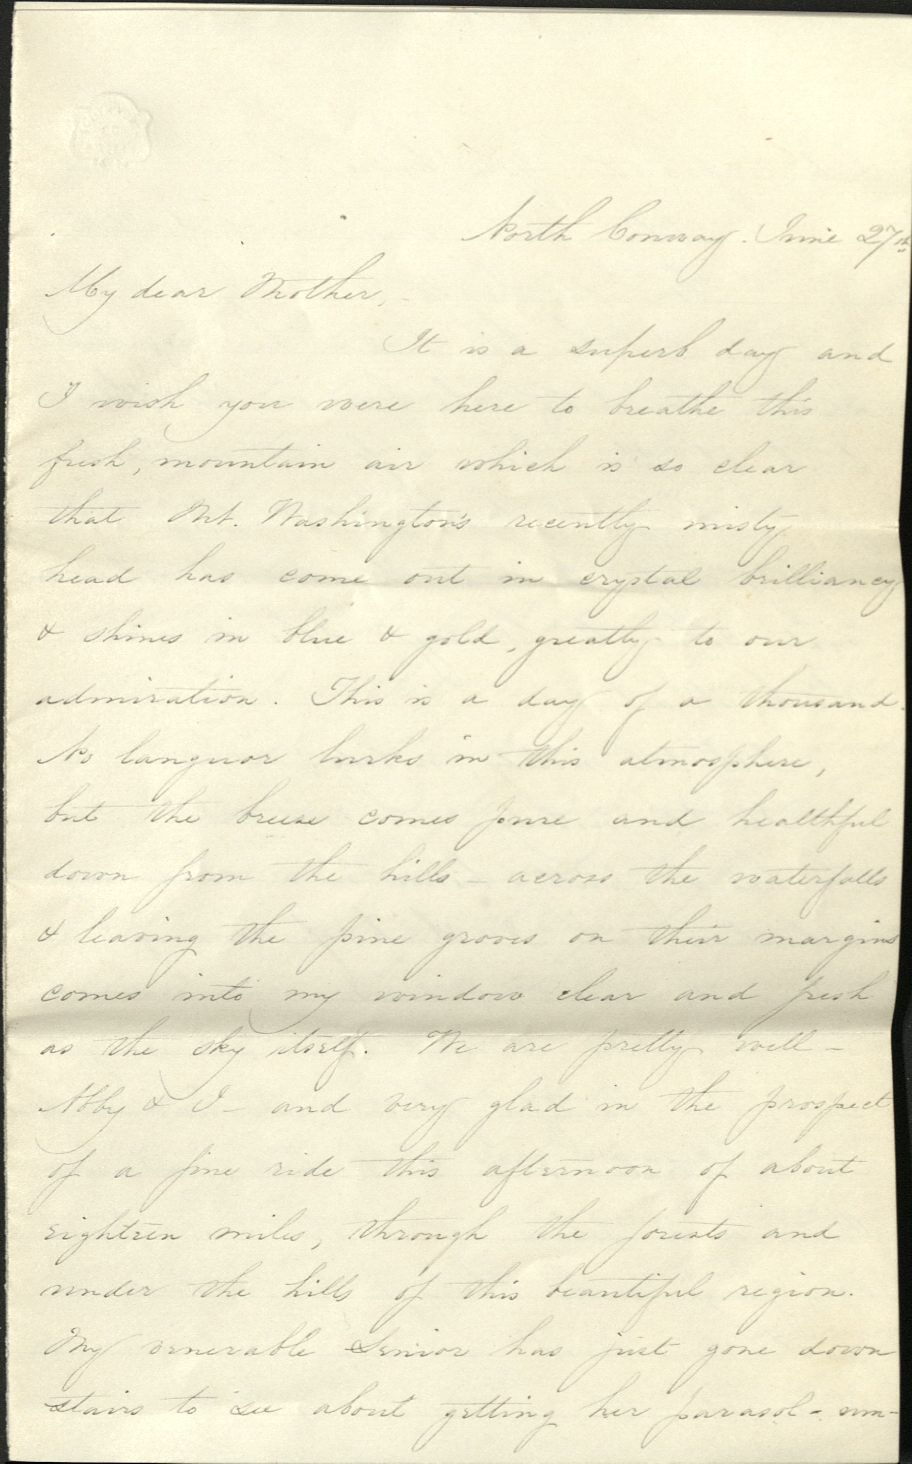 North Conway. June 27th
My dear Mother,
It is a superb day and
I wish you were here to breathe this
fresh, mountain air which is so clear
that Mt. Washington's recently misty
head has come out in crystal brilliancy
& shines in blue & gold, greatly to our
admiration. This is a day of a thousand.
No languor lurks in this atmosphere,
but the breeze comes pure and healthful
down from the hills - across the waterfalls
& leaving the pine groves on their margins
comes into my window clear and fresh
as the sky itself. We are pretty well -
Abby & I - and very glad in the prospect
of a fine ride this afternoon of about
eighteen miles, through the forests and
under the hills of this beautiful region.
My venerable Senior has just gone down
stairs to see about getting her parasol - um-